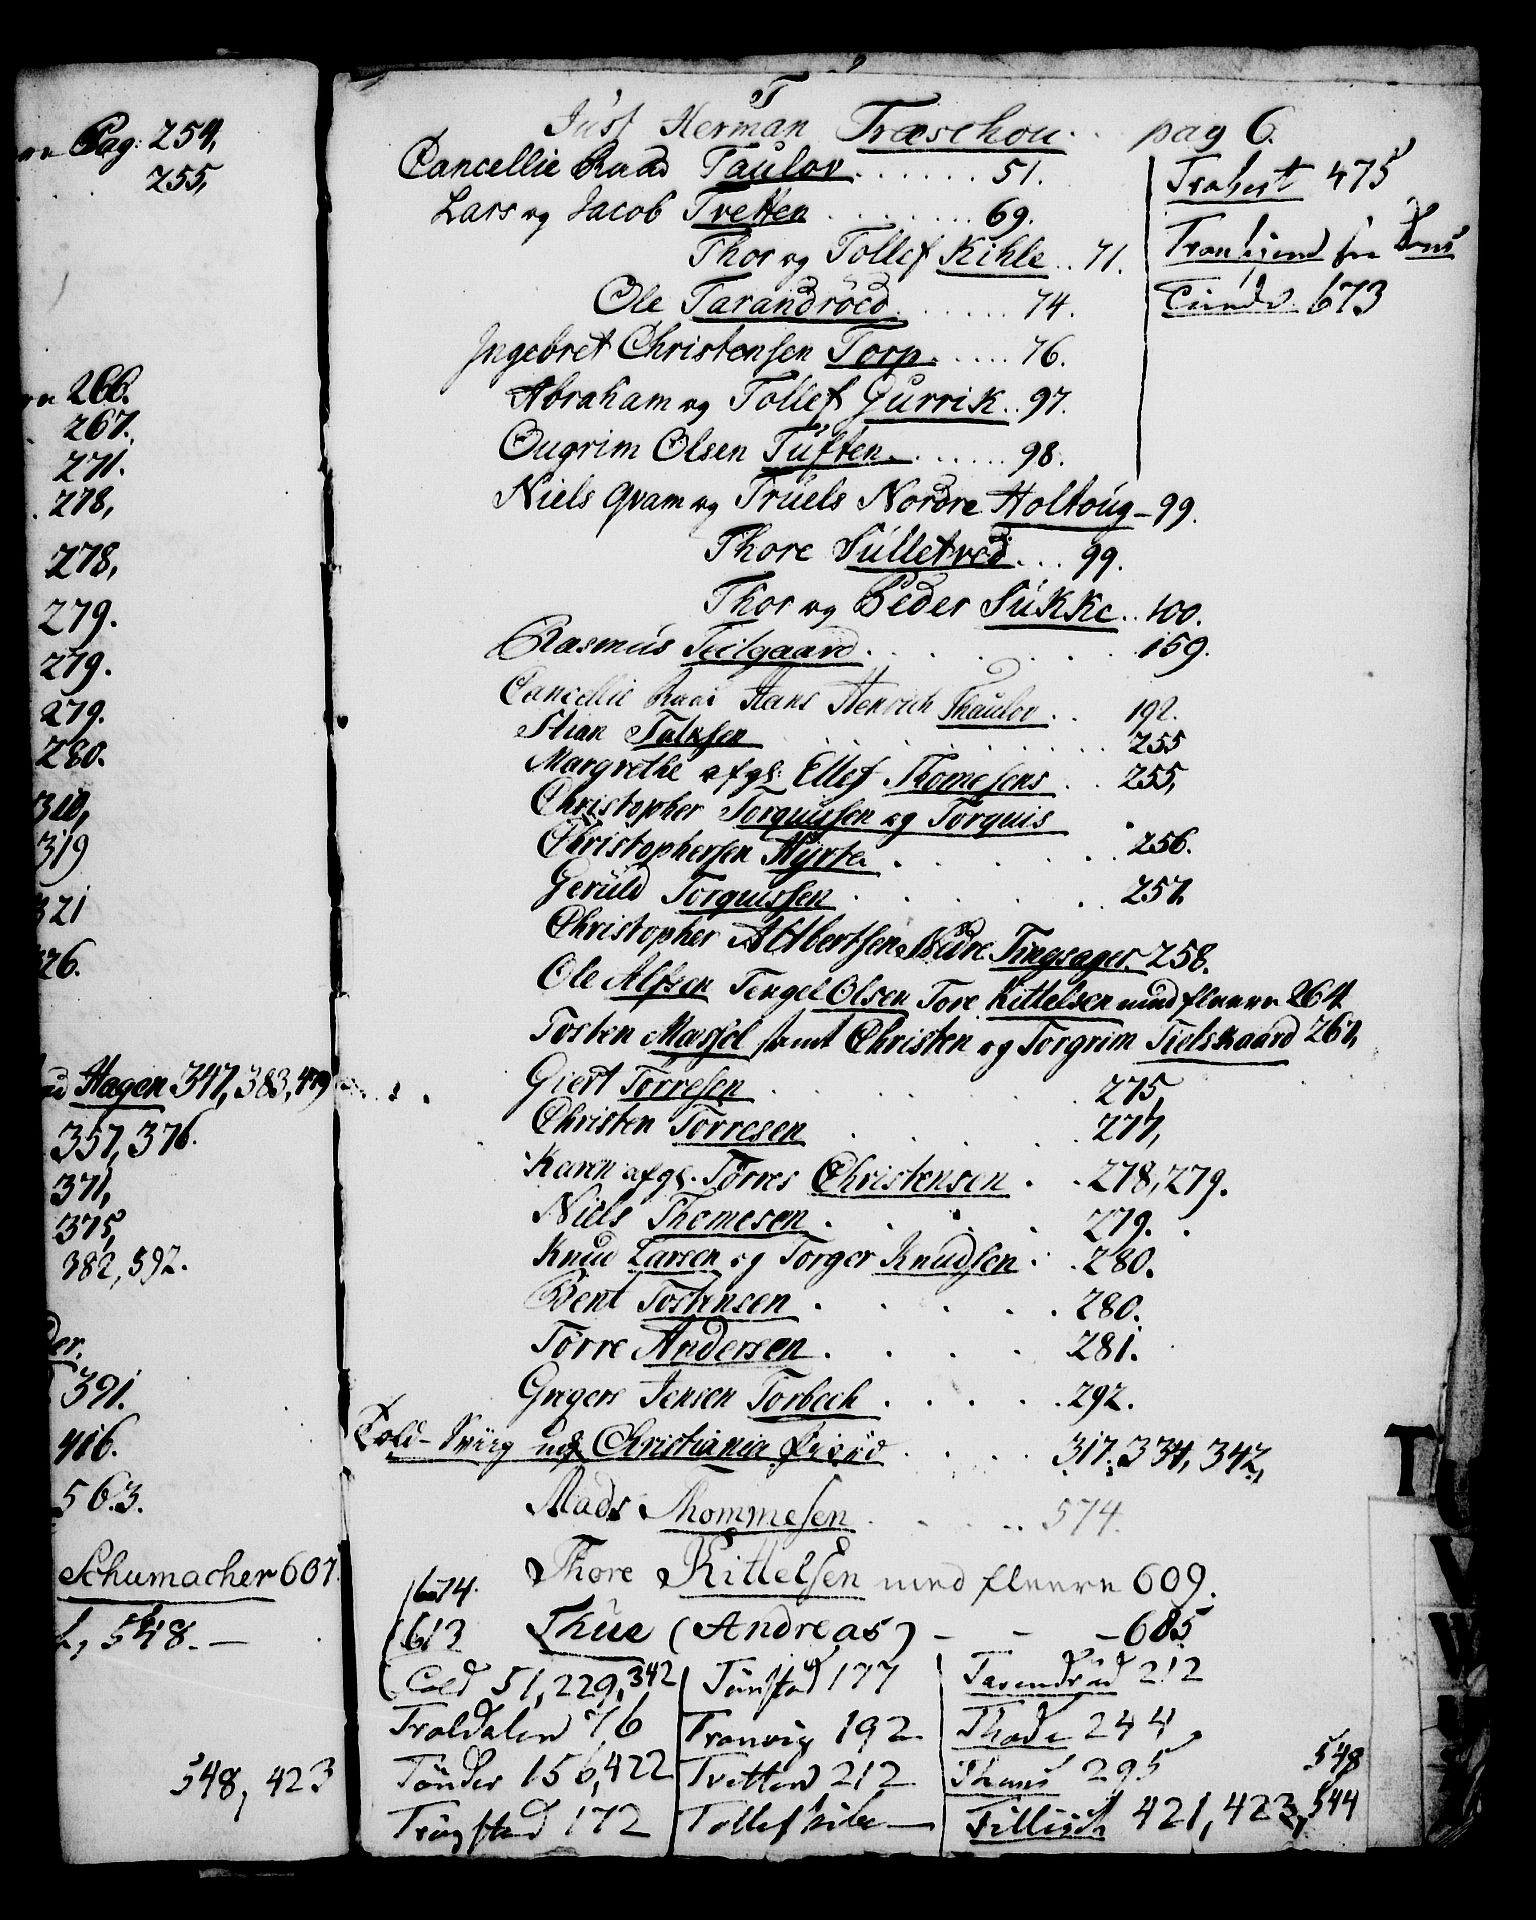 Pag: 254,
255,
266.
267.
271.
278,
278,
279.
279.
279.
280.
310,
319
321
326.
Hagen 347, 383, 479
357, 376.
371,
375,
382, 592.
der.
391.
416.
563.
Schumacher 607.
548. —
548, 423
T
Just Herman Træschou . . pag 6.
Cancellie Raad Taulov . . . . . . 51.
Lars og Jacob Tretten . . . . . . . 69.
Thor og Tollef Kihle . . 71.
Ole Tarandröed . . . . . . 74.
Ingebret Christensen Torp . . . . . 76.
Abraham og Tollef Gurrik . . 97.
Ougrim Olsen Tuften . . . . . . 98.
Niels Qvam og Truels Nordre Holtoug - 99.
Thore Sulletved . . . 99.
Thor og Peder Sukke . . 100.
Rasmus Teilgaard . . . . . . . 159.
Cancellie Raad Hans Henrich Thaulov . . 192.
Stian Talxsen . . . . . . . 255
Margrethe afgl: Ellef Thomesens . . 255,
Christopher Torquissen og Torquis
Christophersen Hyrte . . . . . . 256.
Geruld Torquissen . . . . . 257.
Christopher Altbertsen Nedre Tingsager. 258.
Ole Alfsen Tengel Olsen Tore Kittelsen med fleere 264.
Tosten Mæsfel samt Christen og Torgrim Tielskaard 264,
Giert Torresen . . . . . . 275,
Christen Torresen . . . . . 277,
Karen afgl. Torres Christensen . . 278, 279.
Niels Thomesen . . . . . 279.
Knud Larsen og Torger Knudsen . . 280.
Bent Tostensen . . . . . 280.
Torre Andersen . . . . 281.
Gregers Jensen Torbech . . . . . 292.
Told- Christiania . . . . . 317. 334, 342,
Mads Thommesen . . . . . 574.
Thore Kittelsen med fleere 609.
614.
613 Thue (Andreas) - - - 685
Trabert 475
673
Told 51, 229, 342
Troldalen 76
Tönder 156, 422
Trögstad 172
Tönstad 177
Tranvig 192
Tretten 212
Tollef Kile —
Tarendröd 212
Thode 244
Thams 295
Tillisch 421, 423, 544
548